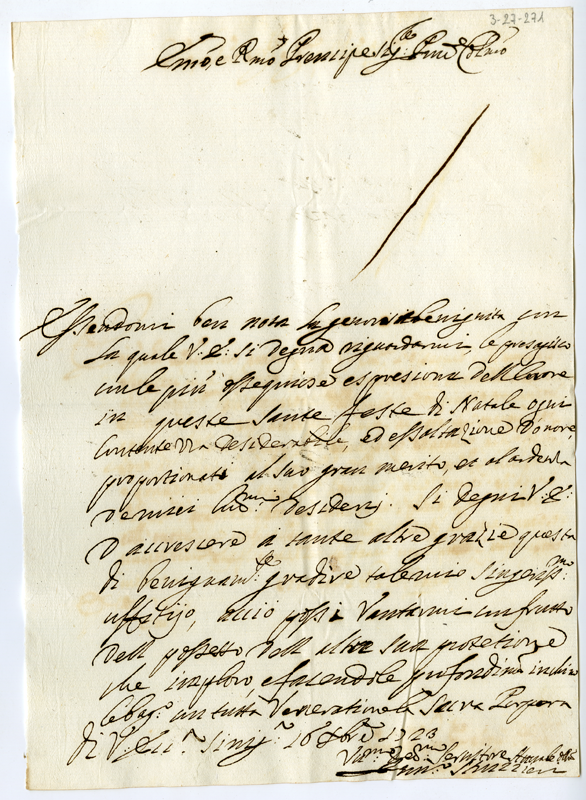 3-27-271
Em̃o, e Rm̃o Prencipe Sig.re Prñe Colm̃o
Essendomi ben nota la generosa benignità con
la quale V. E. si degna riguardarmi, le presagisco
con le più ossequiose espressioni dell Cuore
in queste Sante feste di Natale ogni
Contentezza desiderabile, ed essaltazione d'onore,
proportionati al suo gran merito, et al ardenza
de miei desiderj. Si degni V. E.
d'accrescere a tante altre grazie questa
di benignam.te gradire tal mio singeriss.mo
uffitijo, acciò possi Vantarmi un frutto
dell possesso dell alta sua protetione
che imploro, e facendole profondiss.mo inchino
le bagio con tutta Veneratione la Sacra Porpora
di V. Em. 16 Xbre 1723
Servitore